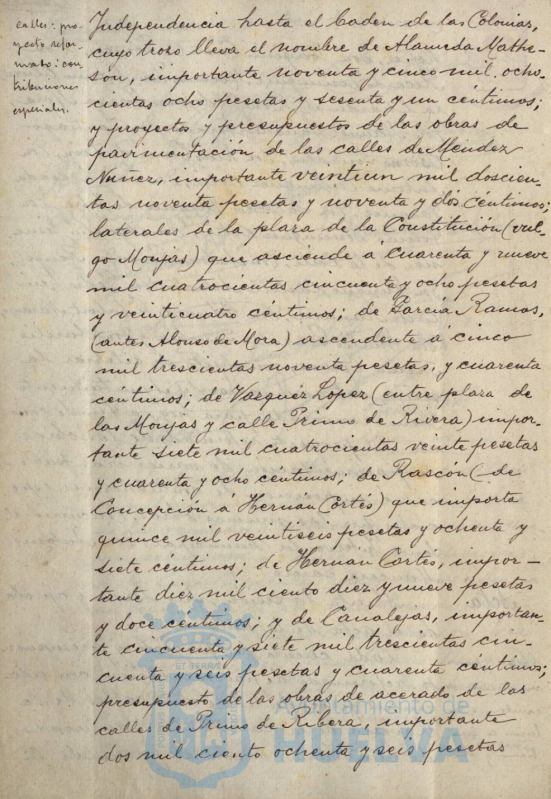 calles: pro-
yecto refor-
mado: con-
tribuciones
especiales.
Independencia hasta el Caden de las Colonias,
cuyo trozo lleva el nombre de Alameda Mathe-
son, importante noventa y cinco mil ocho-
cientas ocho pesetas y sesenta y un céntimos;
y proyectos y presupuestos de las obras de
pavimentación de las calles de Mendez
Nuñez, importante veintiun mil doscien-
tas noventa pesetas y noventa y dós céntimos;
laterales de la plaza de la Constitución (vul-
go Monjas) que asciende á cuarenta y nueve
mil cuatrocientas cincuenta y ocho pesetas
y veinticuatro céntimos; de García Ramos,
(antes Alonso de Mora) ascendente á cinco
mil trescientas noventa pesetas, y cuarenta
céntimos; de Vazquéz Lopez (entre plaza de
las Monjas y calle Primo de Rivera) impor-
tante siete mil cuatrocientas veinte pesetas
y cuarenta y ocho céntimos; de Rascón (de
Concepción á Hernán Cortés) que importa
quince mil veintiseis pesetas y ochenta y
siete céntimos; de Hernán Cortés, impor-
tante diez mil ciento diez y nueve pesetas
y doce centimos; y de Canalejas, importan-
te cincuenta y siete mil trescientas cin-
cuenta y seis pesetas y cuarenta céntimos;
presupuesto de las obras de acerado de las
calles de Primo de Ribera, importante
dos mil ciento ochenta y seis pesetas
Ayuntamiento de
HUELVA